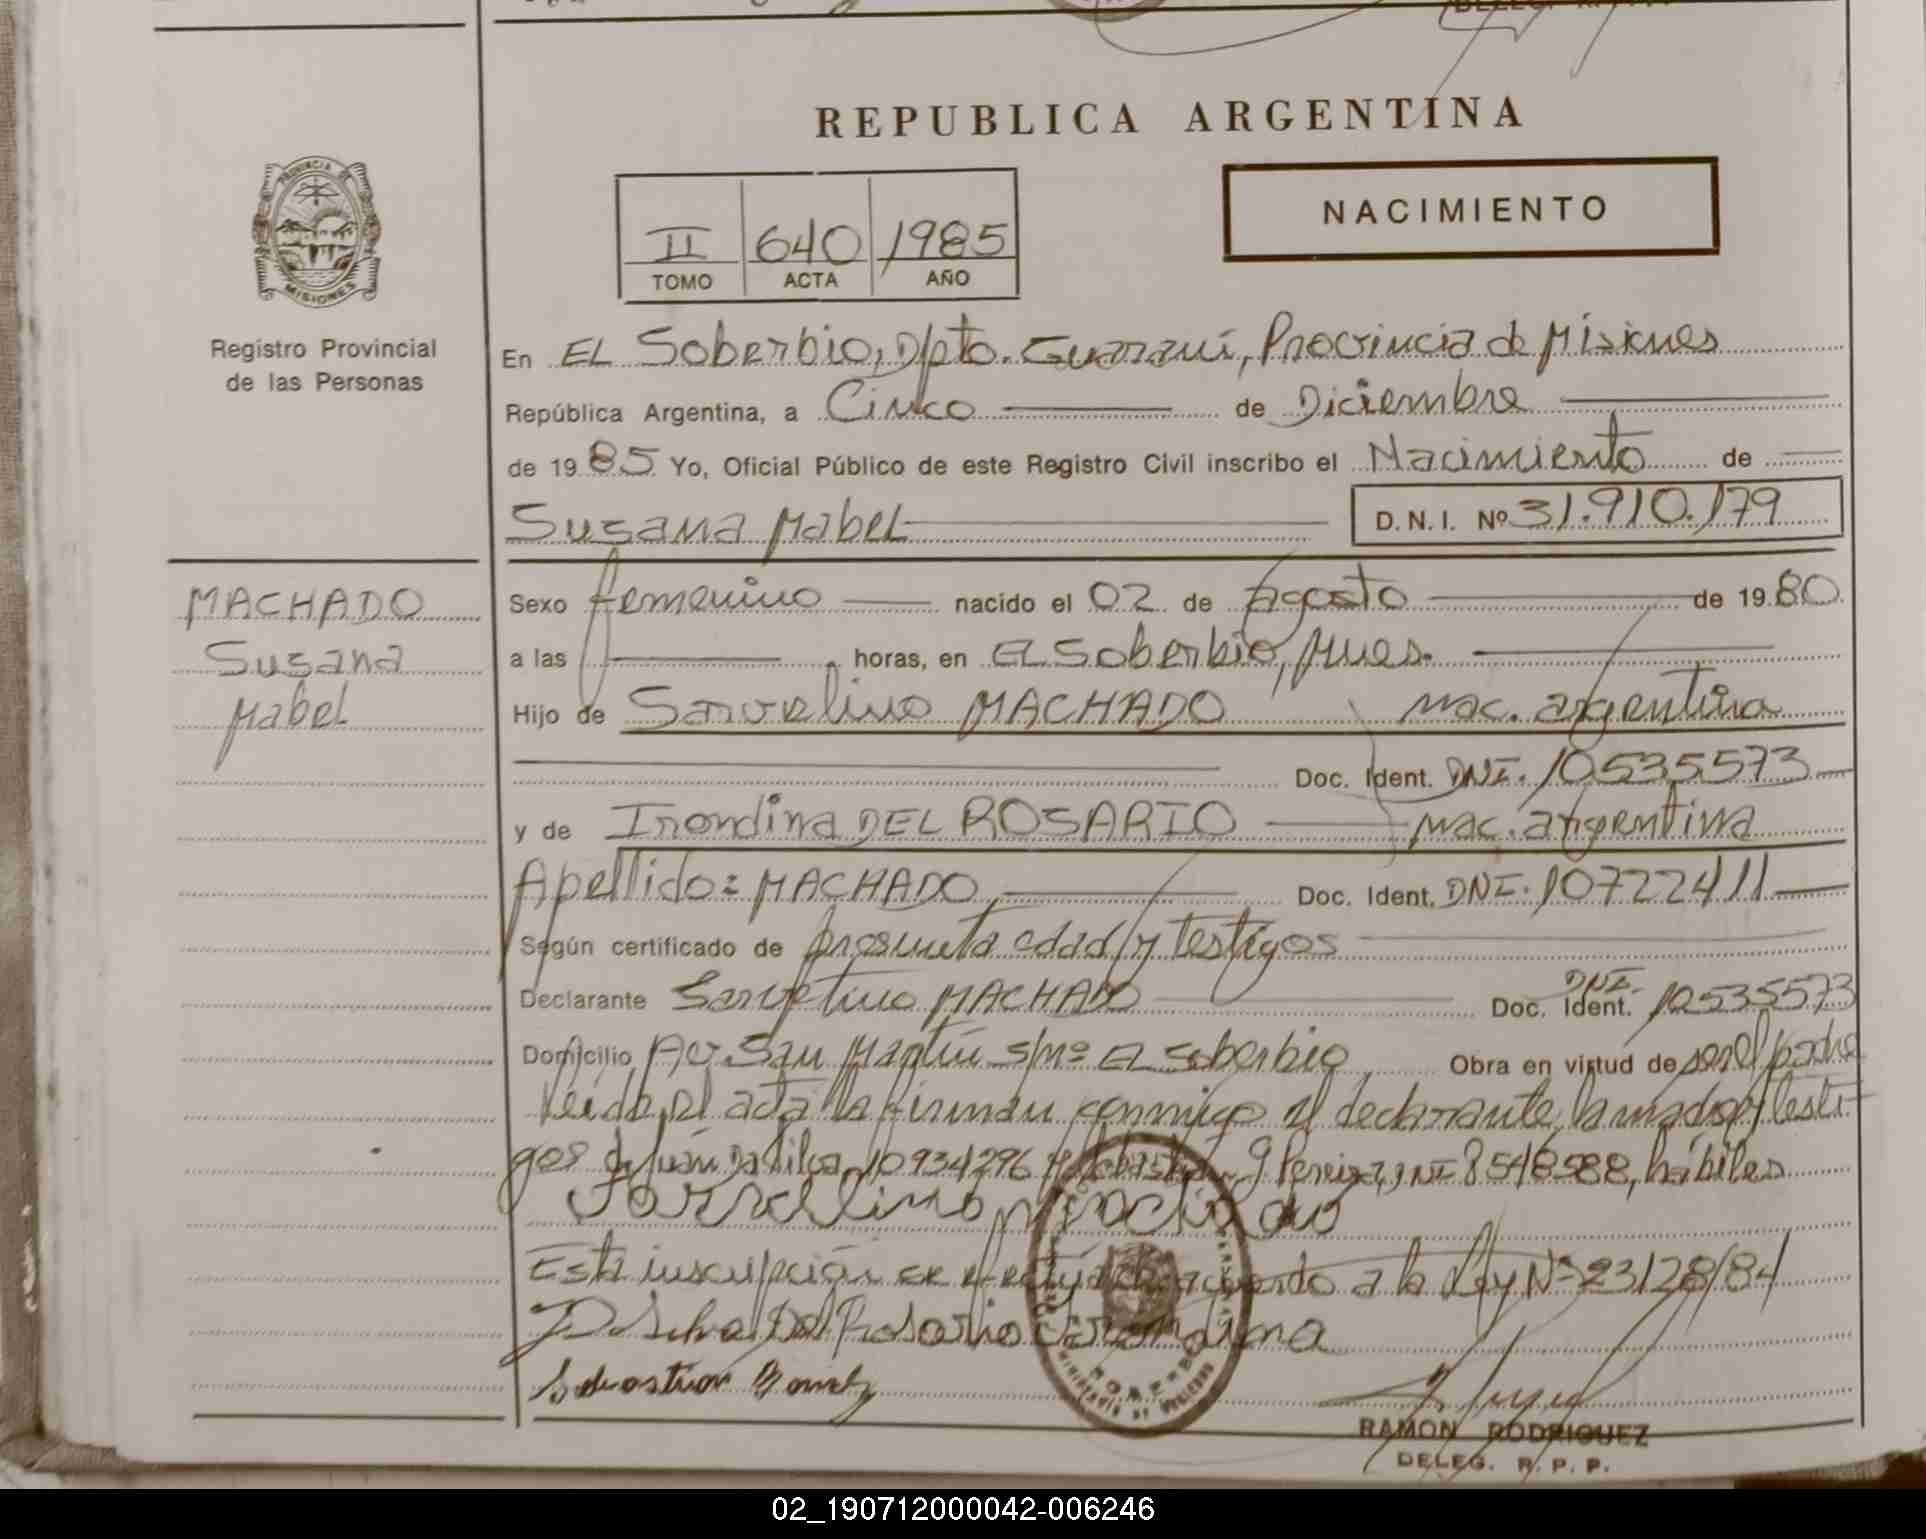 REPUBLICA ARGENTINA
PROVINCIA DE
MISIONES
Registro Provincial
de las Personas
NACIMIENTO
II 640 1985
TOMO ACTA AÑO
En EL Soberbio, Dpto. Guaraní, Provincia de Misiones
República Argentina, a Cinco de Diciembre
de 1985 Yo, Oficial Público de este Registro Civil inscribo el Nacimiento de
Susana Mabel D.N.I. Nº 31.910.179
MACHADO
Susana
Mabel
Sexo femenino nacido el 02 de Agosto de 1980
a las horas, en EL Soberbio, Mnes.
Hijo de Sarvelino MACHADO nac. argentina
Doc. Ident. DNI. 10535573
y de Irondina DEL ROSARIO nac. argentina
Apellido: MACHADO Doc. Ident. DNI. 10722411
Según certificado de presunta edad y testigos
Declarante Sarvelino MACHADO Doc. Ident. DNI. 10535573
Domicilio Av. San Martín s/nº EL Soberbio Obra en virtud de ser el padre
Leída el acta la firman conmigo el declarante, la madre y testi-
gos Juán Da Silva 10934296 y Sebastián G Pereira, DNI 8548588, hábiles
Esta inscripción se efectúa de acuerdo a la Ley Nº 23128/84
Del Rosario
Sebastian
RAMON RODRIGUEZ
DELEG. R. P. P.
02_190712000042-006246